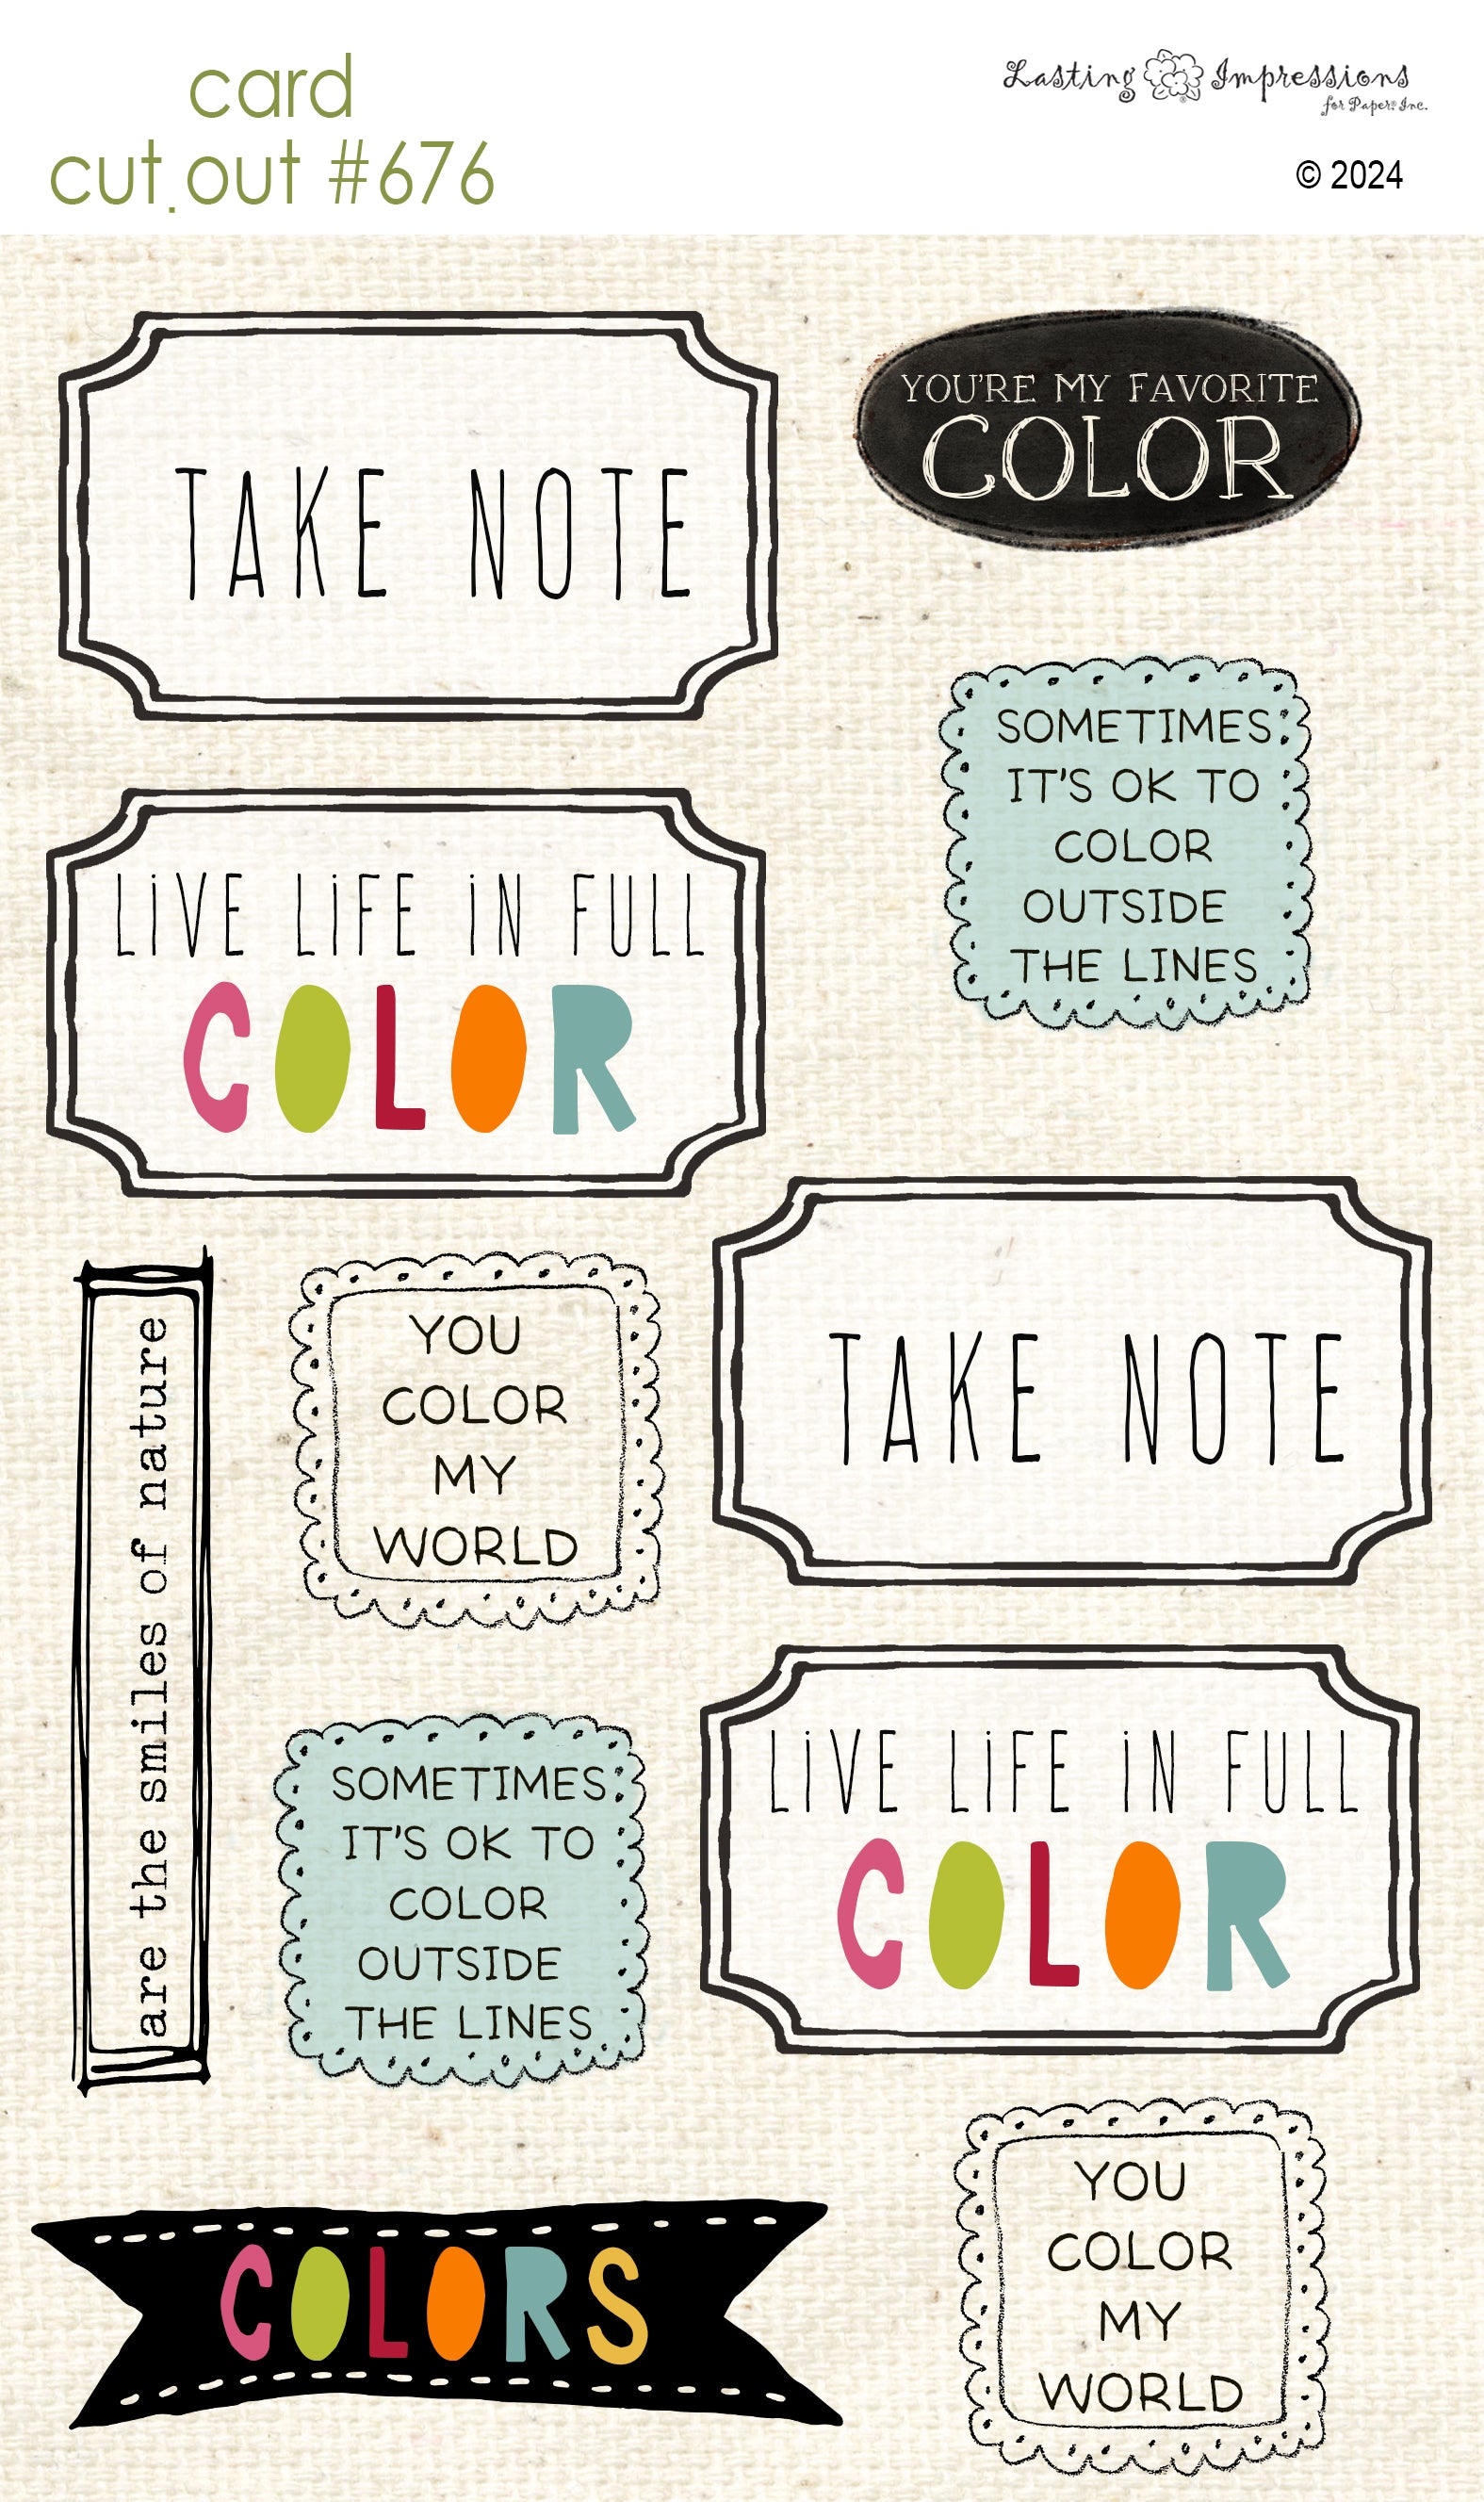 card
cut.out #676
Lasting Impressions
for Paper, Inc.
© 2024
TAKE NOTE
YOU'RE MY FAVORITE
COLOR
SOMETIMES
IT'S OK TO
COLOR
OUTSIDE
THE LINES
LiVE LiFE iN FULL
COLOR
are the smiles of nature
YOU
COLOR
MY
WORLD
TAKE NOTE
SOMETIMES
IT'S OK TO
COLOR
OUTSIDE
THE LINES
LiVE LiFE iN FULL
COLOR
COLORS
YOU
COLOR
MY
WORLD